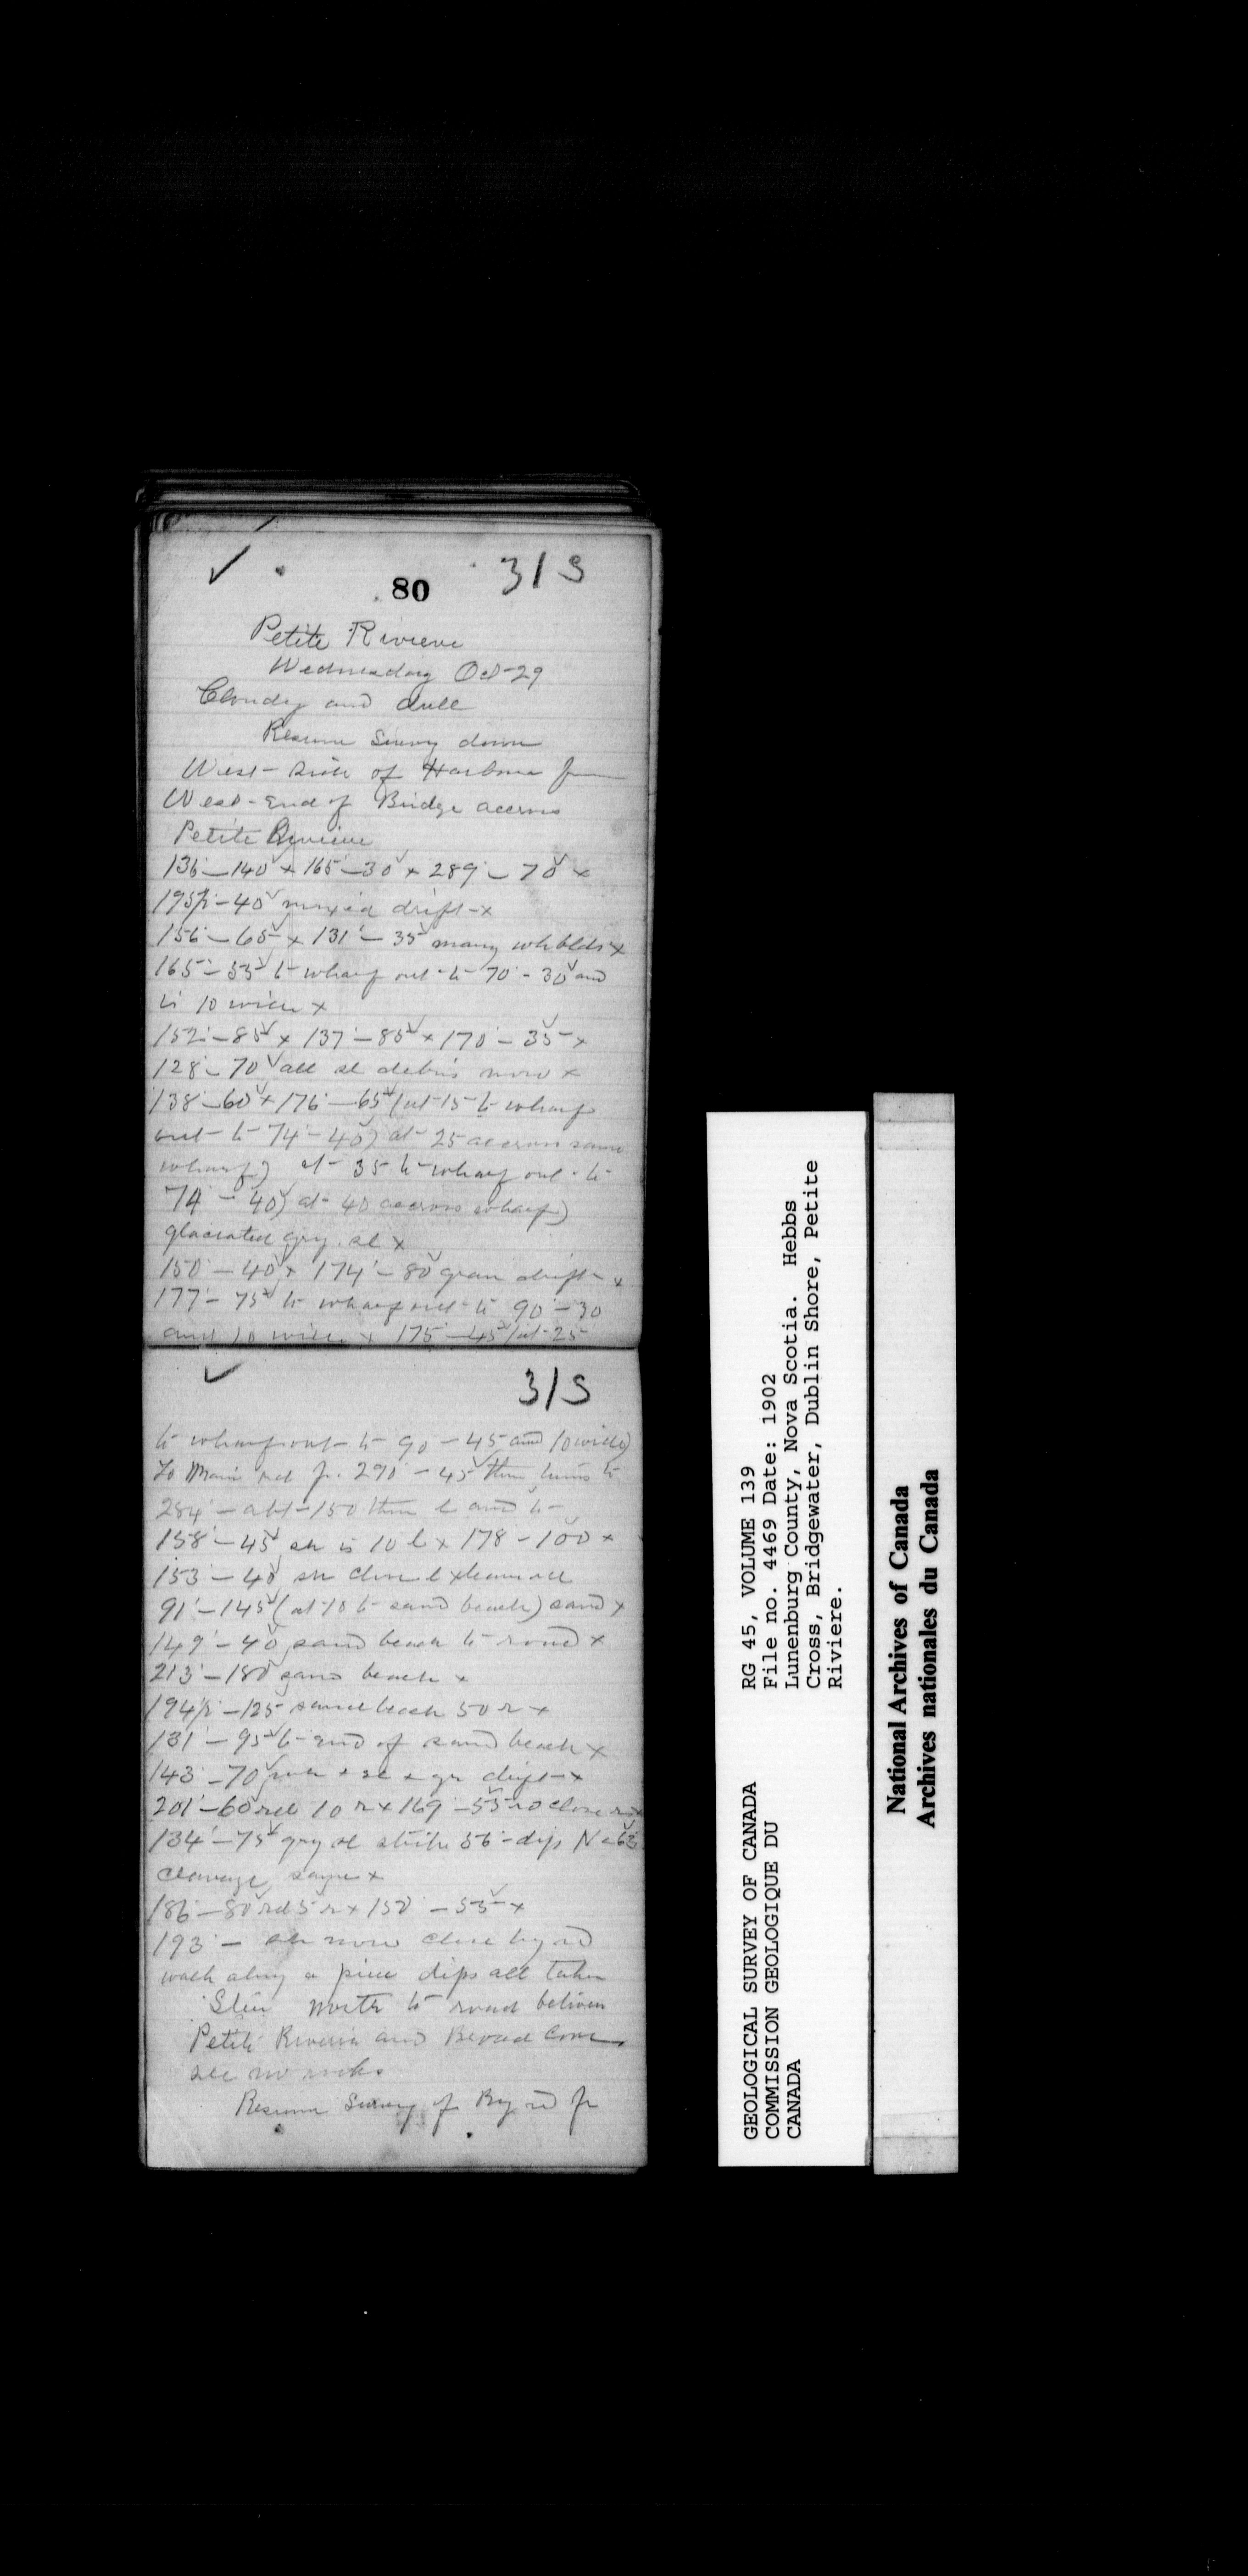 ✓ 80 31S
Petite Riviere
Wednesday Oct-29
Cloudy and dull
Resume Survey down
West-Side of Harbour from
West-End of Bridge accross
Petite Riviere
136°-140 x 165°-30 x 289°-70 x
195½-40 mixed drift-x
156°-65 x 131°-35 many wh blds x
165°-55 to wharf out-to 70°-30 and
is 10 wide x
152°-85 x 137°-85 x 170°-35 x
128°-70 all sl debris now x
138°-60 x 176°-65 (at-15 to wharf
out-to 74°-40) at-25 accross same
wharf) at-35 to wharf out-to
74°-40) at-40 accross wharf)
glaciated gry. sl x
150°-40 x 174°-80 gran drift-x
177°-75 to wharf out-to 90°-30
and 10 wide x 175°-45 (at-25
✓ 31S
to wharf out-to 90-45 and 10 wide)
To Main rd fr. 290°-45 then turns to
284°-abt-150 then l and to-
158°-45 sh is 10 l x 178-100 x
153°-40 sh close l x
91°-145 (at 10 to sand beach) sand x
149°-40 sand beach to road x
213°-180 sand beach x
194½-125 sand beach 50 r x
131°-95 to-end of sand beach x
143°-70 + sl + gr drift-x
201°-60 rd 10 r x 169°-55 rd close r x
134°-75 gry sl strike 56°-dip N 63
cleavage same x
186°-80 rd 5 r x 150°-55 x
193°- sh now close by rd
walk along a piece dips all taken
north to road between
Petite Riviere and Broad Cove
see no rocks
Resume Survey of By rd fr
RG 45, VOLUME 139
File no. 4469 Date: 1902
Lunenburg County, Nova Scotia. Hebbs
Cross, Bridgewater, Dublin Shore, Petite
Riviere.
GEOLOGICAL SURVEY OF CANADA
COMMISSION GEOLOGIQUE DU
CANADA
National Archives of Canada
Archives nationales du Canada